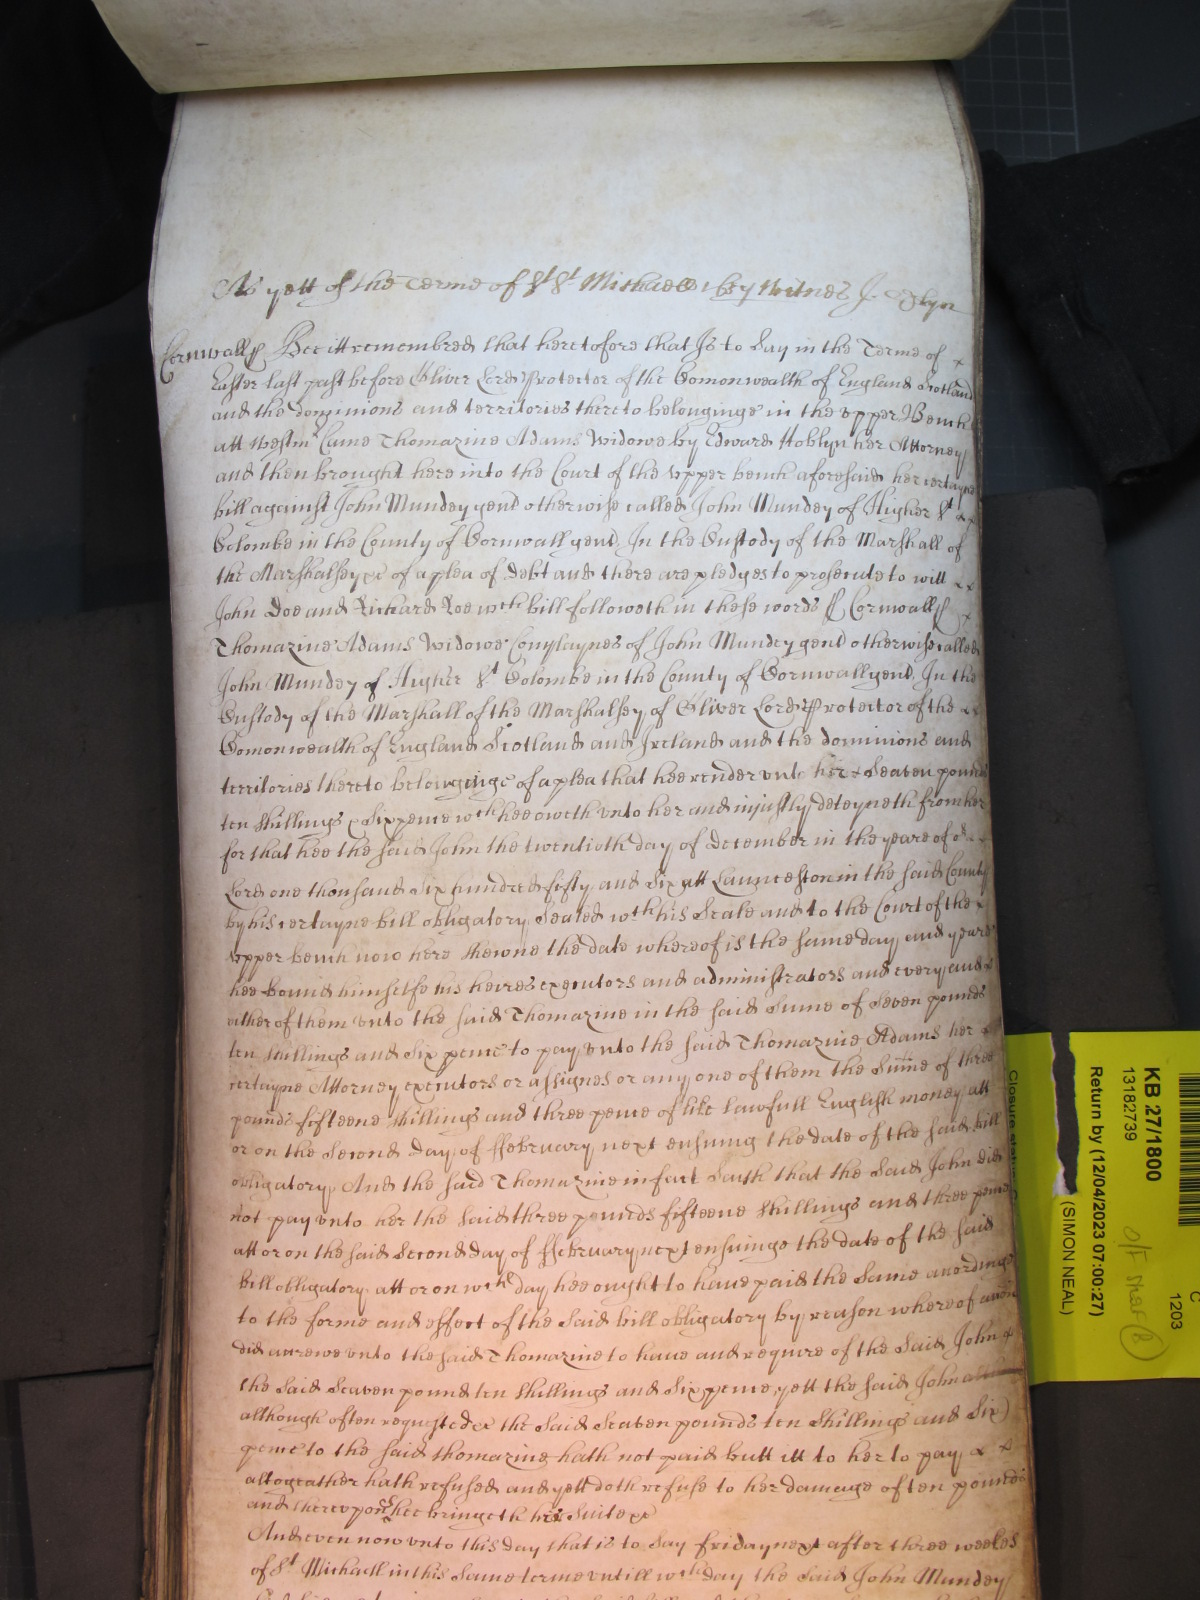 As yett of the Terme of St Michaell
Cornwall ss Bee itt remembred that heretofore that Is to Say in the Terme of x
Easter last past before Oliver Lord Protector of the Comonwealth of England Scotland
and the dominions and territories thereto belonginge in the vpper Bench
att Westmr Came Thomazine Adams Widowe by Edward Hoblyn her Attorney
and then brought here into the Court of the vpper bench aforesaid her certayne
bill against John Mundey gent otherwise called John Mundey of Higher St
Colombe in the County of Cornwall gent In the Custody of the Marshall of
the Marshalsey &c of a plea of debt and there are pledges to prosecute to witt
John Doe and Richard Roe wch bill followeth in these words ss Cornwall ss
Thomazine Adams Widowe Complaynes of John Mundey gent otherwise called
John Mundey of Higher St Colombe in the County of Cornwall gent In the
Custody of the Marshall of the Marshalsey of Oliver Lord Protector of the
Comonwealth of England Scotland and Ireland and the dominions and
territories thereto belonginge of a plea that hee render vnto her Seaven pounds
ten Shillings & Sixpence wch hee oweth vnto her and injustly deteyneth from her
for that hee the said John the twentieth day of december in the yeare of or
Lord one thousand Six hundred fifty and Six att Launceston in the said County
by his certayne bill obligatory Sealed wth his Seale and to the Court of the
vpper bench now here shewne the date whereof is the same day and yeare
hee bound himselfe his heires executors and administrators and every and
either of them vnto the said Thomazine in the said Sume of Seven pounds
ten shillings and Six pence to pay vnto the said Thomazine Adams her
certayne Attorney executors or assignes or any one of them the Sume of three
pounds fifteene shillings and three pence of like lawfull English money att
or on the Second Day of ffebruary next ensuing the date of the said bill
obligatory And the said Thomazine in fact Saith that the Said John did
not pay vnto her the said three pounds fifteene Shillings and three pence
att or on the said Second Day of ffebruary next ensuinge the date of the said
bill obligatory att or on wch day hee ought to haue paid the Same accordinge
to the forme and effect of the Said bill obligatory by reason whereof accon
did accrewe vnto the said Thomazine to haue and require of the Said John
the Said Seaven pound ten Shillings and Six pence yett the said John
although often requested &c the Said Seaven pounds ten Shillings and Six
pence to the said thomazine hath not paid butt itt to her to pay
altogeather hath refused and yett doth refuse to her damage of ten pounds
and therevpon shee bringeth her Suite &c
And even now vnto this day that is to Say friday next after three weekes
of St Michaell in this Same terme vntill wch day the Said John Mundey
KB 27/1800
13182739
Return by (12/04/2023 07:00:27)
(SIMON NEAL)
C
1203
Closure